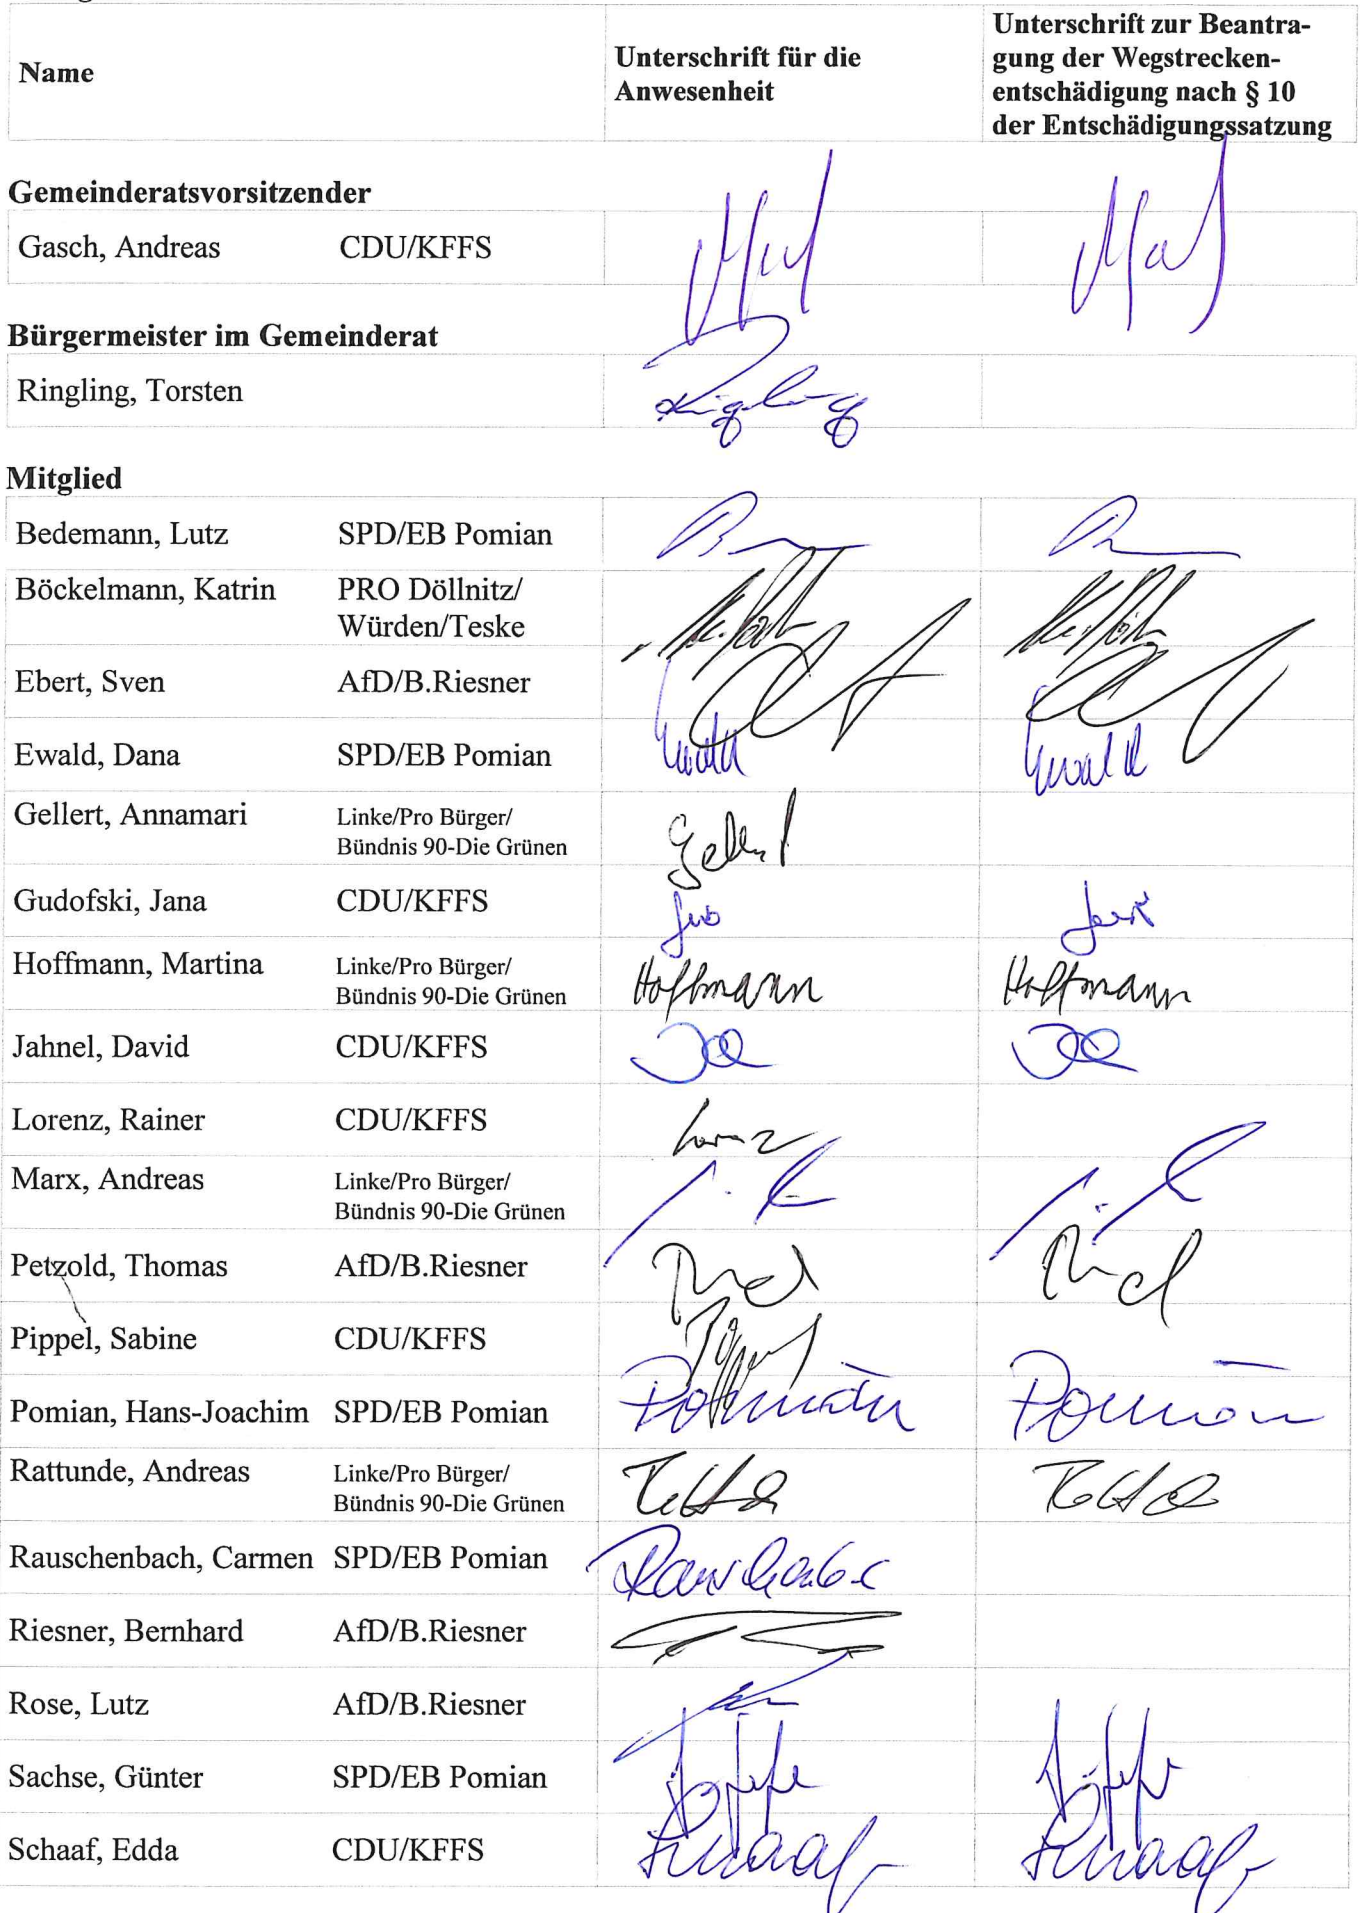 Name
Unterschrift für die
Anwesenheit
Unterschrift zur Beantra-
gung der Wegstrecken-
entschädigung nach § 10
der Entschädigungssatzung
Gemeinderatsvorsitzender
Gasch, Andreas CDU/KFFS
Bürgermeister im Gemeinderat
Ringling, Torsten
Mitglied
Bedemann, Lutz SPD/EB Pomian
Böckelmann, Katrin PRO Döllnitz/
Würden/Teske
Ebert, Sven AfD/B.Riesner
Ewald, Dana SPD/EB Pomian Ewald Ewald
Gellert, Annamari Linke/Pro Bürger/
Bündnis 90-Die Grünen
Gellert
Gudofski, Jana CDU/KFFS
Hoffmann, Martina Linke/Pro Bürger/
Bündnis 90-Die Grünen
Hoffmann Hoffmann
Jahnel, David CDU/KFFS
Lorenz, Rainer CDU/KFFS Lorenz
Marx, Andreas Linke/Pro Bürger/
Bündnis 90-Die Grünen
Petzold, Thomas AfD/B.Riesner
Pippel, Sabine CDU/KFFS
Pomian, Hans-Joachim SPD/EB Pomian Pomian Pomian
Rattunde, Andreas Linke/Pro Bürger/
Bündnis 90-Die Grünen
Rauschenbach, Carmen SPD/EB Pomian
Riesner, Bernhard AfD/B.Riesner
Rose, Lutz AfD/B.Riesner
Sachse, Günter SPD/EB Pomian
Schaaf, Edda CDU/KFFS Schaaf Schaaf